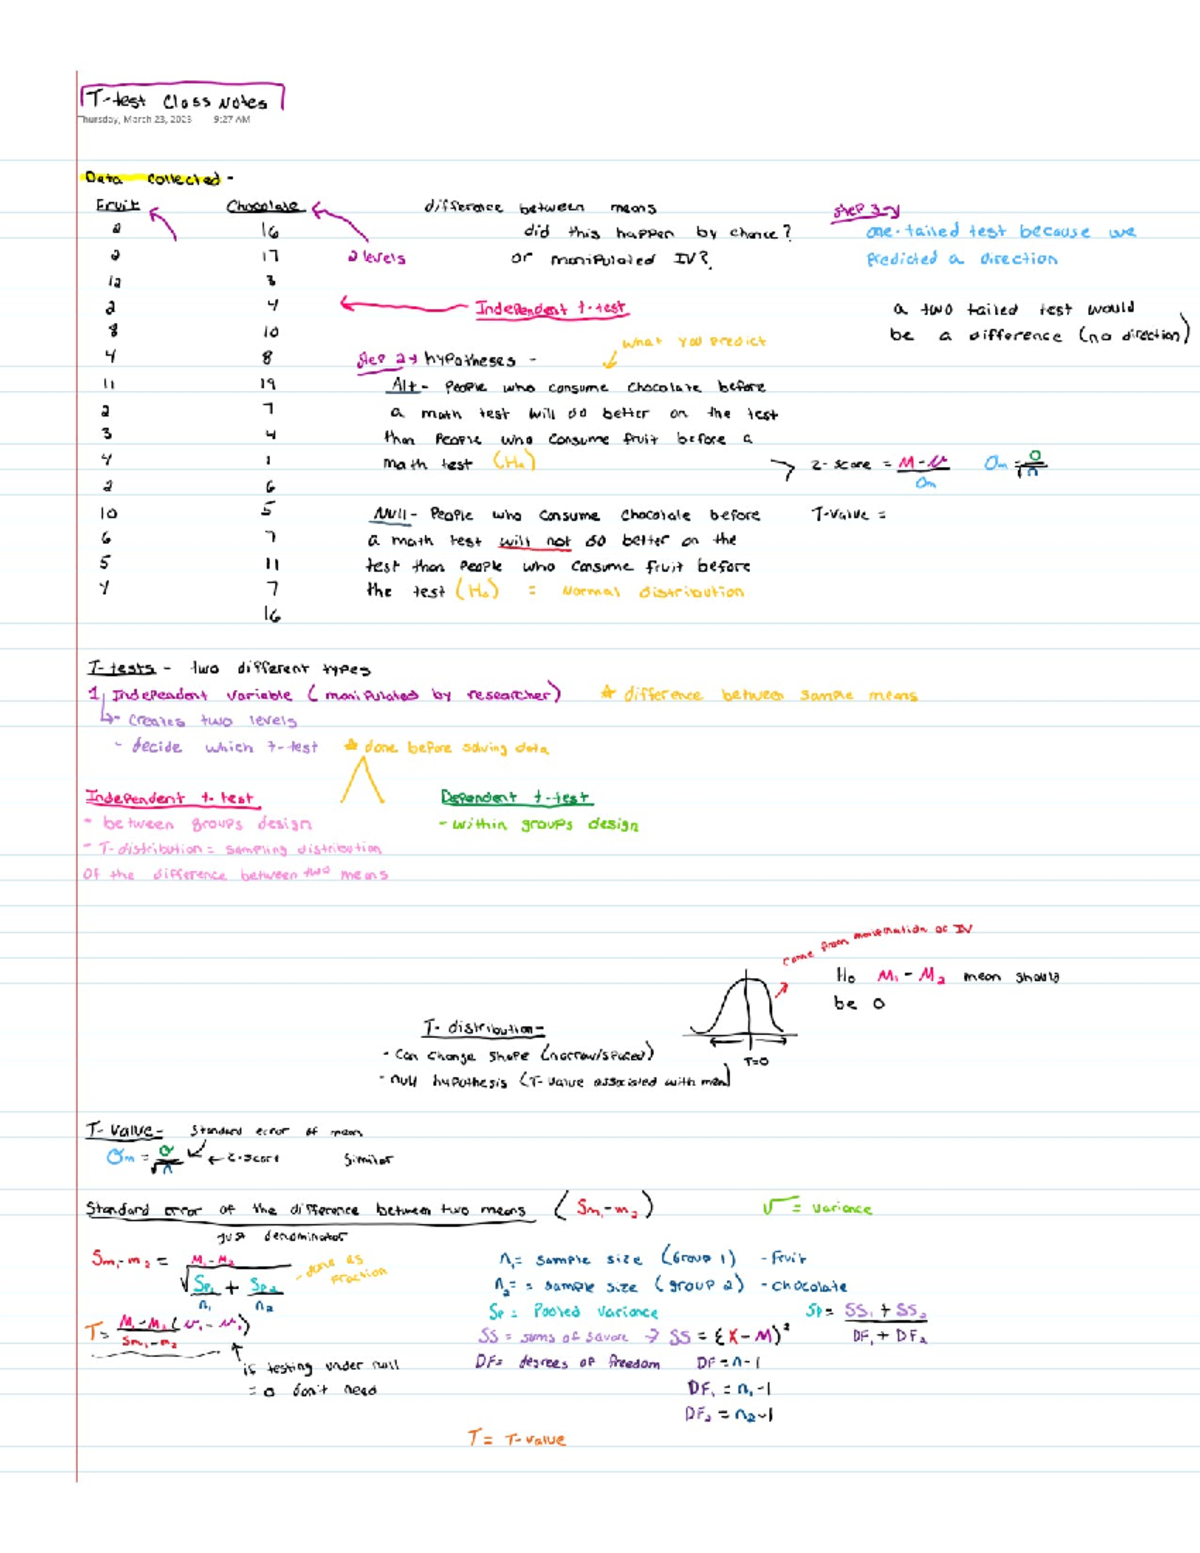 T-test Class Notes
Thursday, March 23, 2023 9:27 AM
Data collected -
Fruit Chocolate
2 16
2 17
12 3
2 4
8 10
4 8
11 19
2 7
3 4
4 1
2 6
10 5
6 7
5 11
4 7
16
2 levels
difference between means
did this happen by chance?
or manipulated IV?
Independent t-test
Step 2→ hypotheses -
what you predict
Alt - People who consume chocolate before
a math test will do better on the test
than people who consume fruit before a
math test (Ha)
Null - People who consume chocolate before
a math test will not do better on the
test than people who consume fruit before
the test (Ho) = Normal distribution
Step 3→
one-tailed test because we
predicted a direction
a two tailed test would
be a difference (no direction)
→ z-score = M-μ / σm σm = σ/√n
T-value =
T-tests - two different types
1 Independent variable (manipulated by researcher) ☆ difference between sample means
↳- creates two levels
- decide which t-test ☆ done before solving data
Independent t-test
- between groups design
- T-distribution = sampling distribution
of the difference between two means
Dependent t-test
- within groups design
come from manipulation of IV
Ho M₁ - M₂ mean should
be 0
T=0
T-distribution-
- can change shape (narrow/spaced)
- null hypothesis (T-value associated with mean)
T-value- Standard error of mean
σm = σ/√n ← z-score similar
Standard error of the difference between two means (Sm₁-m₂) √ = variance
just denominator
Sm₁-m₂ = M₁-M₂ / √ Sp₁/n₁ + Sp₂/n₂ - done as fraction
T = M₁-M₂(μ₁-μ₂) / Sm₁-m₂
is testing under null
= 0 don't need
n₁= sample size (Group 1) - fruit
n₂= = sample size (group 2) - chocolate
Sp = Pooled variance Sp = SS₁ + SS₂ / DF₁ + DF₂
SS = sums of square → SS = Σ(X-M)²
DF= degrees of freedom DF = n-1
DF₁ = n₁-1
DF₂ = n₂-1
T = T-value